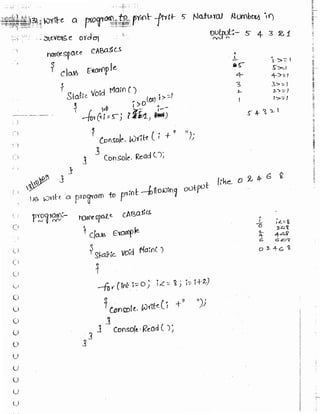 3) write a program to print first 5 Natural Numbers in
reverse order
output:- 5 4 3 2 1
namespace CABasics
{
class Example
{
Static Void Main()
{
int
for(i=5; i>0(or) i>=1
i--
{
Console.Write(i+" ");
}
Console.Read();
}
}
}
i i>=1
5 5>=1
4 4>=1
3 3>=1
2 2>=1
1 1>=1
5 4 3 2 1
write a program to print following output like 0 2 4 6 8
program:- namespace CABasics
{
class Example
{
Static void Main()
{
for(int i=0; i<=8; i=i+2)
{
Console.Write(i+" ");
}
Console.Read();
}
}
}
i i<=8
0
2 2≤8
4 4≤8
6 6≤8
0 2 4 6 8